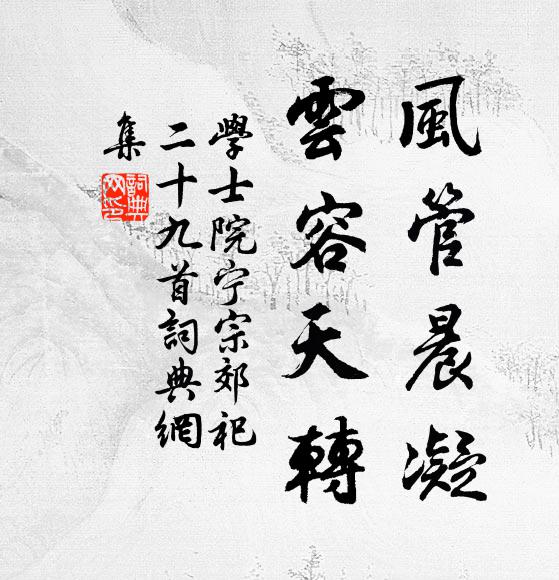 風管晨凝
雲容天轉
學士院宁宗郊祀
二十九首詞典網
集
詞典
网印